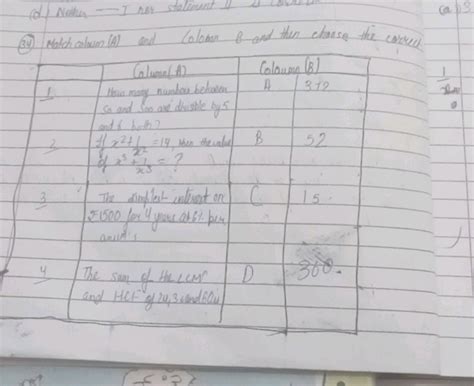 (d) Neither I nor statement II is correct
(34) Match column (A) and Column B and then choose the correct
Column(A) Column (B)
1. How many numbers between A 372
50 and 500 are divisible by 5
and 6 both?
2. If x²+1/x² =14, then the value B 52
of x³+1/x³ = ?
3 The simplest interest on C 15.
₹1500 for 4 years at 6% per
4 The sum of the LCM D 360.
and HCF of 24, 36 and 60